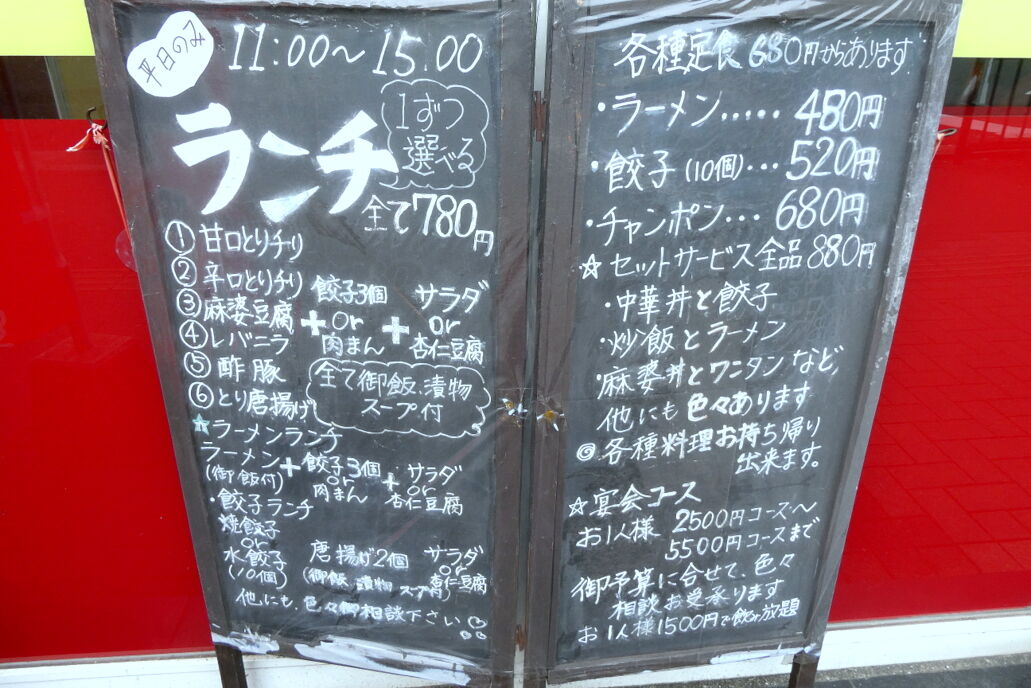 平日のみ
11:00〜15.00
ランチ
1ずつ
選べる
全て780円
①甘口とりチリ
②辛口とりチリ
③麻婆豆腐
④レバニラ
⑤酢豚
⑥とり唐揚げ
+
餃子3個
or
肉まん
+
サラダ
or
杏仁豆腐
全て御飯、漬物
スープ付
☆ラーメンランチ
ラーメン
(御飯付)
+
餃子3個
or
肉まん
+
サラダ
or
杏仁豆腐
・餃子ランチ
焼餃子
or
水餃子
(10個)
唐揚げ2個
(御飯 漬物 スープ付)
サラダ
or
杏仁豆腐
他にも、色々御相談下さい♡
♡♡
各種定食680円からあります
・ラーメン・・・・・480円
・餃子(10個)・・・520円
・チャンポン・・・680円
☆セットサービス全品880円
・中華丼と餃子
・炒飯とラーメン
・麻婆丼とワンタンなど,
他にも色々あります
◎各種料理お持ち帰り
出来ます。
☆宴会コース
お1人様 2500円コース〜
5500円コースまで
御予算に合せて、色々
相談お受承ります
お1人様1500円で飲み放題